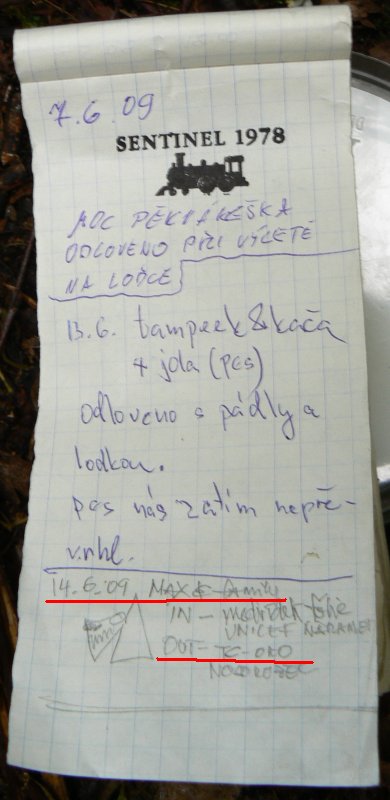 7.6.09
SENTINEL 1978
MOC PĚKNÁ KEŠKA
ODLOVENO PŘI VÝLETĚ
NA LOĎCE
13.6. tampeek & kača
+ jda (pes)
odloveno s pádly a
loďkou.
pes nás zatím nepře-
vrhl.
14.6.09 MAX & family
IN –
UNICEF NÁRAMEK
OUT – TC – OKO
NOSOROŽEC